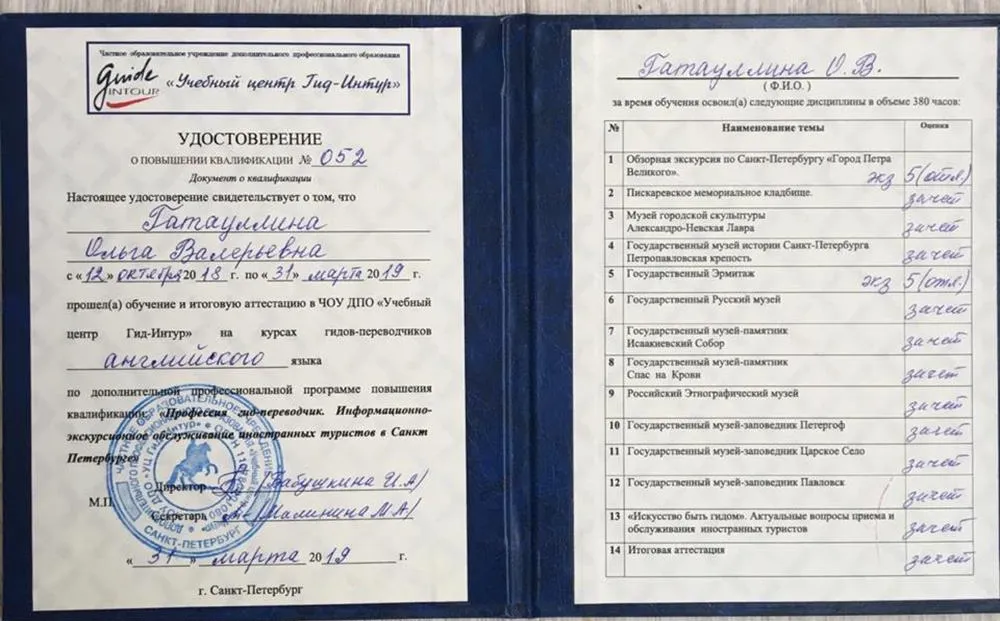 Частное образовательное учреждение дополнительного профессионального образования
Guide
INTOUR
«Учебный центр Гид-Интур»
УДОСТОВЕРЕНИЕ
О ПОВЫШЕНИИ КВАЛИФИКАЦИИ № 052
Документ о квалификации
Настоящее удостоверение свидетельствует о том, что
Гатауллина
Ольга Валерьевна
с «12» октября 2018 г. по «31» марта 2019 г.
прошел(а) обучение и итоговую аттестацию в ЧОУ ДПО «Учебный
центр Гид-Интур» на курсах гидов-переводчиков
английского языка
по дополнительной профессиональной программе повышения
квалификации: «Профессия гид-переводчик. Информационно-
экскурсионное обслуживание иностранных туристов в Санкт
Петербурге»
Директор (Бабушкина И.А)
М.П.
Секретарь (Малинина М.А)
САНКТ-ПЕТЕРБУРГ
«31» марта 2019 г.
г. Санкт-Петербург
Гатауллина О.В.
( Ф.И.О. )
за время обучения освоил(а) следующие дисциплины в объеме 380 часов:
№ Наименование темы Оценка
1 Обзорная экскурсия по Санкт-Петербургу «Город Петра
Великого». экз 5(отл.)
2 Пискаревское мемориальное кладбище. зачет
3 Музей городской скульптуры
Александро-Невская Лавра зачет
4 Государственный музей истории Санкт-Петербурга
Петропавловская крепость зачет
5 Государственный Эрмитаж экз 5(отл.)
6 Государственный Русский музей зачет
7 Государственный музей-памятник
Исаакиевский Собор зачет
8 Государственный музей-памятник
Спас на Крови зачет
9 Российский Этнографический музей зачет
10 Государственный музей-заповедник Петергоф зачет
11 Государственный музей-заповедник Царское Село зачет
12 Государственный музей-заповедник Павловск зачет
13 «Искусство быть гидом». Актуальные вопросы приема и
обслуживания иностранных туристов зачет
14 Итоговая аттестация зачет